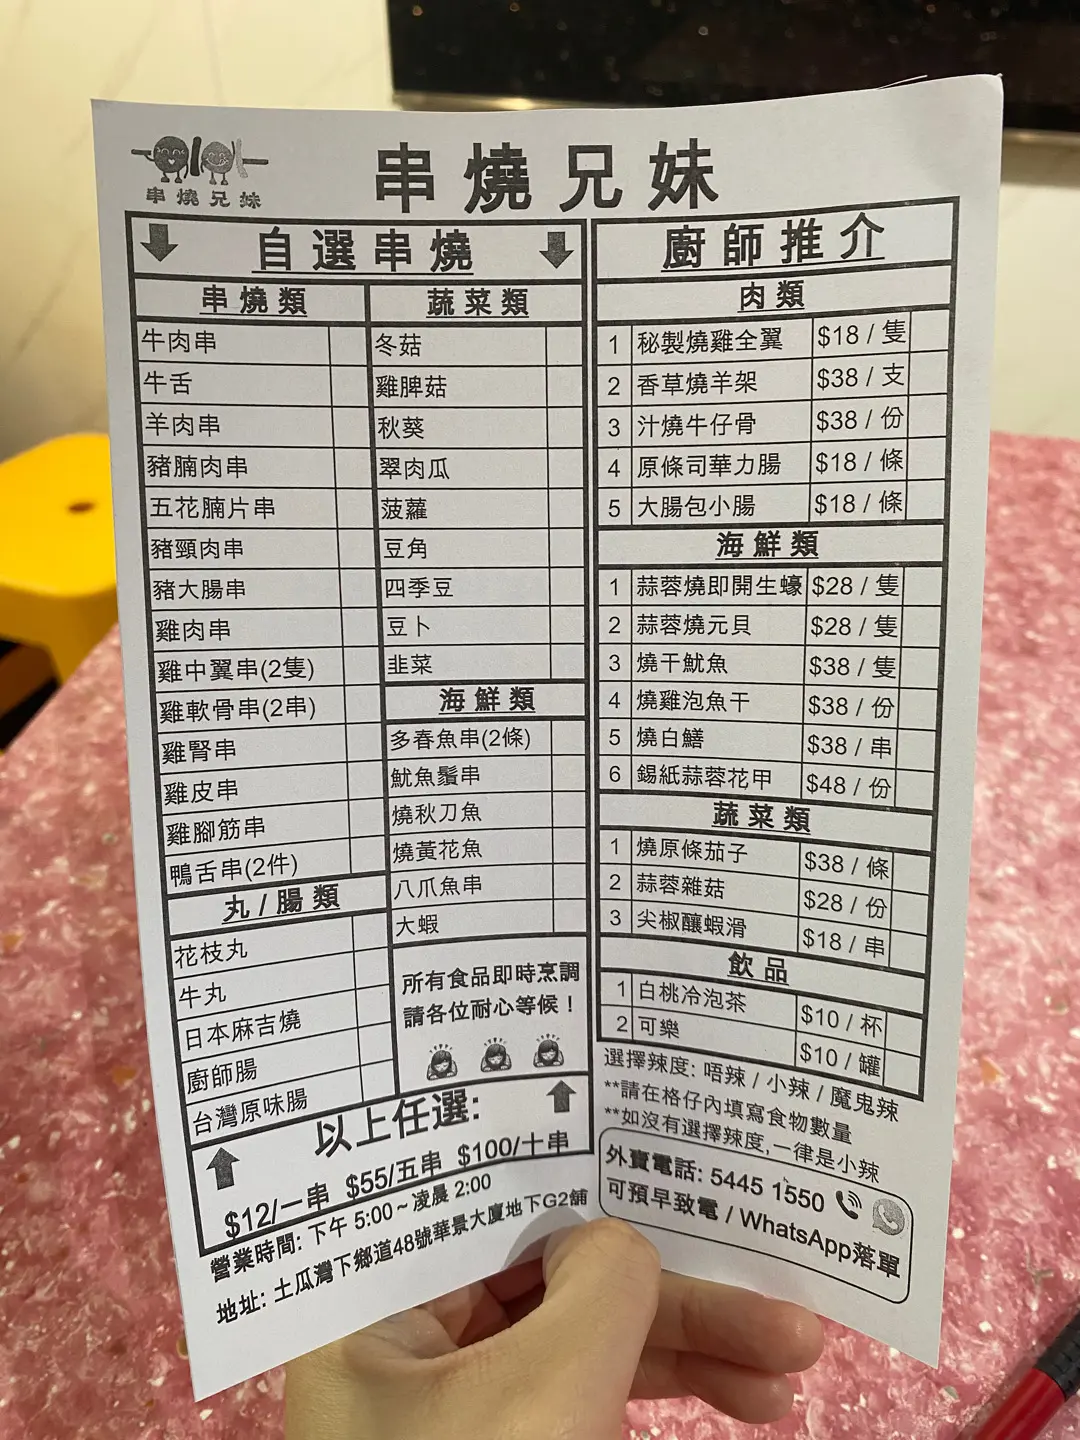 串燒兄妹
串燒兄妹
自選串燒
串燒類
牛肉串
牛舌
羊肉串
豬腩肉串
五花腩片串
豬頸肉串
豬大腸串
雞肉串
雞中翼串(2隻)
雞軟骨串(2串)
雞腎串
雞皮串
雞腳筋串
鴨舌串(2件)
丸/腸類
花枝丸
牛丸
日本麻吉燒
廚師腸
台灣原味腸
蔬菜類
冬菇
雞脾菇
秋葵
翠肉瓜
菠蘿
豆角
四季豆
豆卜
韭菜
海鮮類
多春魚串(2條)
魷魚鬚串
燒秋刀魚
燒黃花魚
八爪魚串
大蝦
所有食品即時烹調
請各位耐心等候！
以上任選:
$12/一串 $55/五串 $100/十串
營業時間: 下午 5:00 ~ 凌晨 2:00
地址: 土瓜灣下鄉道48號華景大廈地下G2舖
廚師推介
肉類
1 秘製燒雞全翼 $18 / 隻
2 香草燒羊架 $38 / 支
3 汁燒牛仔骨 $38 / 份
4 原條司華力腸 $18 / 條
5 大腸包小腸 $18 / 條
海鮮類
1 蒜蓉燒即開生蠔 $28 / 隻
2 蒜蓉燒元貝 $28 / 隻
3 燒干魷魚 $38 / 隻
4 燒雞泡魚干 $38 / 份
5 燒白鱔 $38 / 串
6 錫紙蒜蓉花甲 $48 / 份
蔬菜類
1 燒原條茄子 $38 / 條
2 蒜蓉雜菇 $28 / 份
3 尖椒釀蝦滑 $18 / 串
飲品
1 白桃冷泡茶 $10 / 杯
2 可樂 $10 / 罐
選擇辣度: 唔辣 / 小辣 / 魔鬼辣
**請在格仔內填寫食物數量
**如沒有選擇辣度,一律是小辣
外賣電話: 5445 1550
可預早致電 / WhatsApp落單